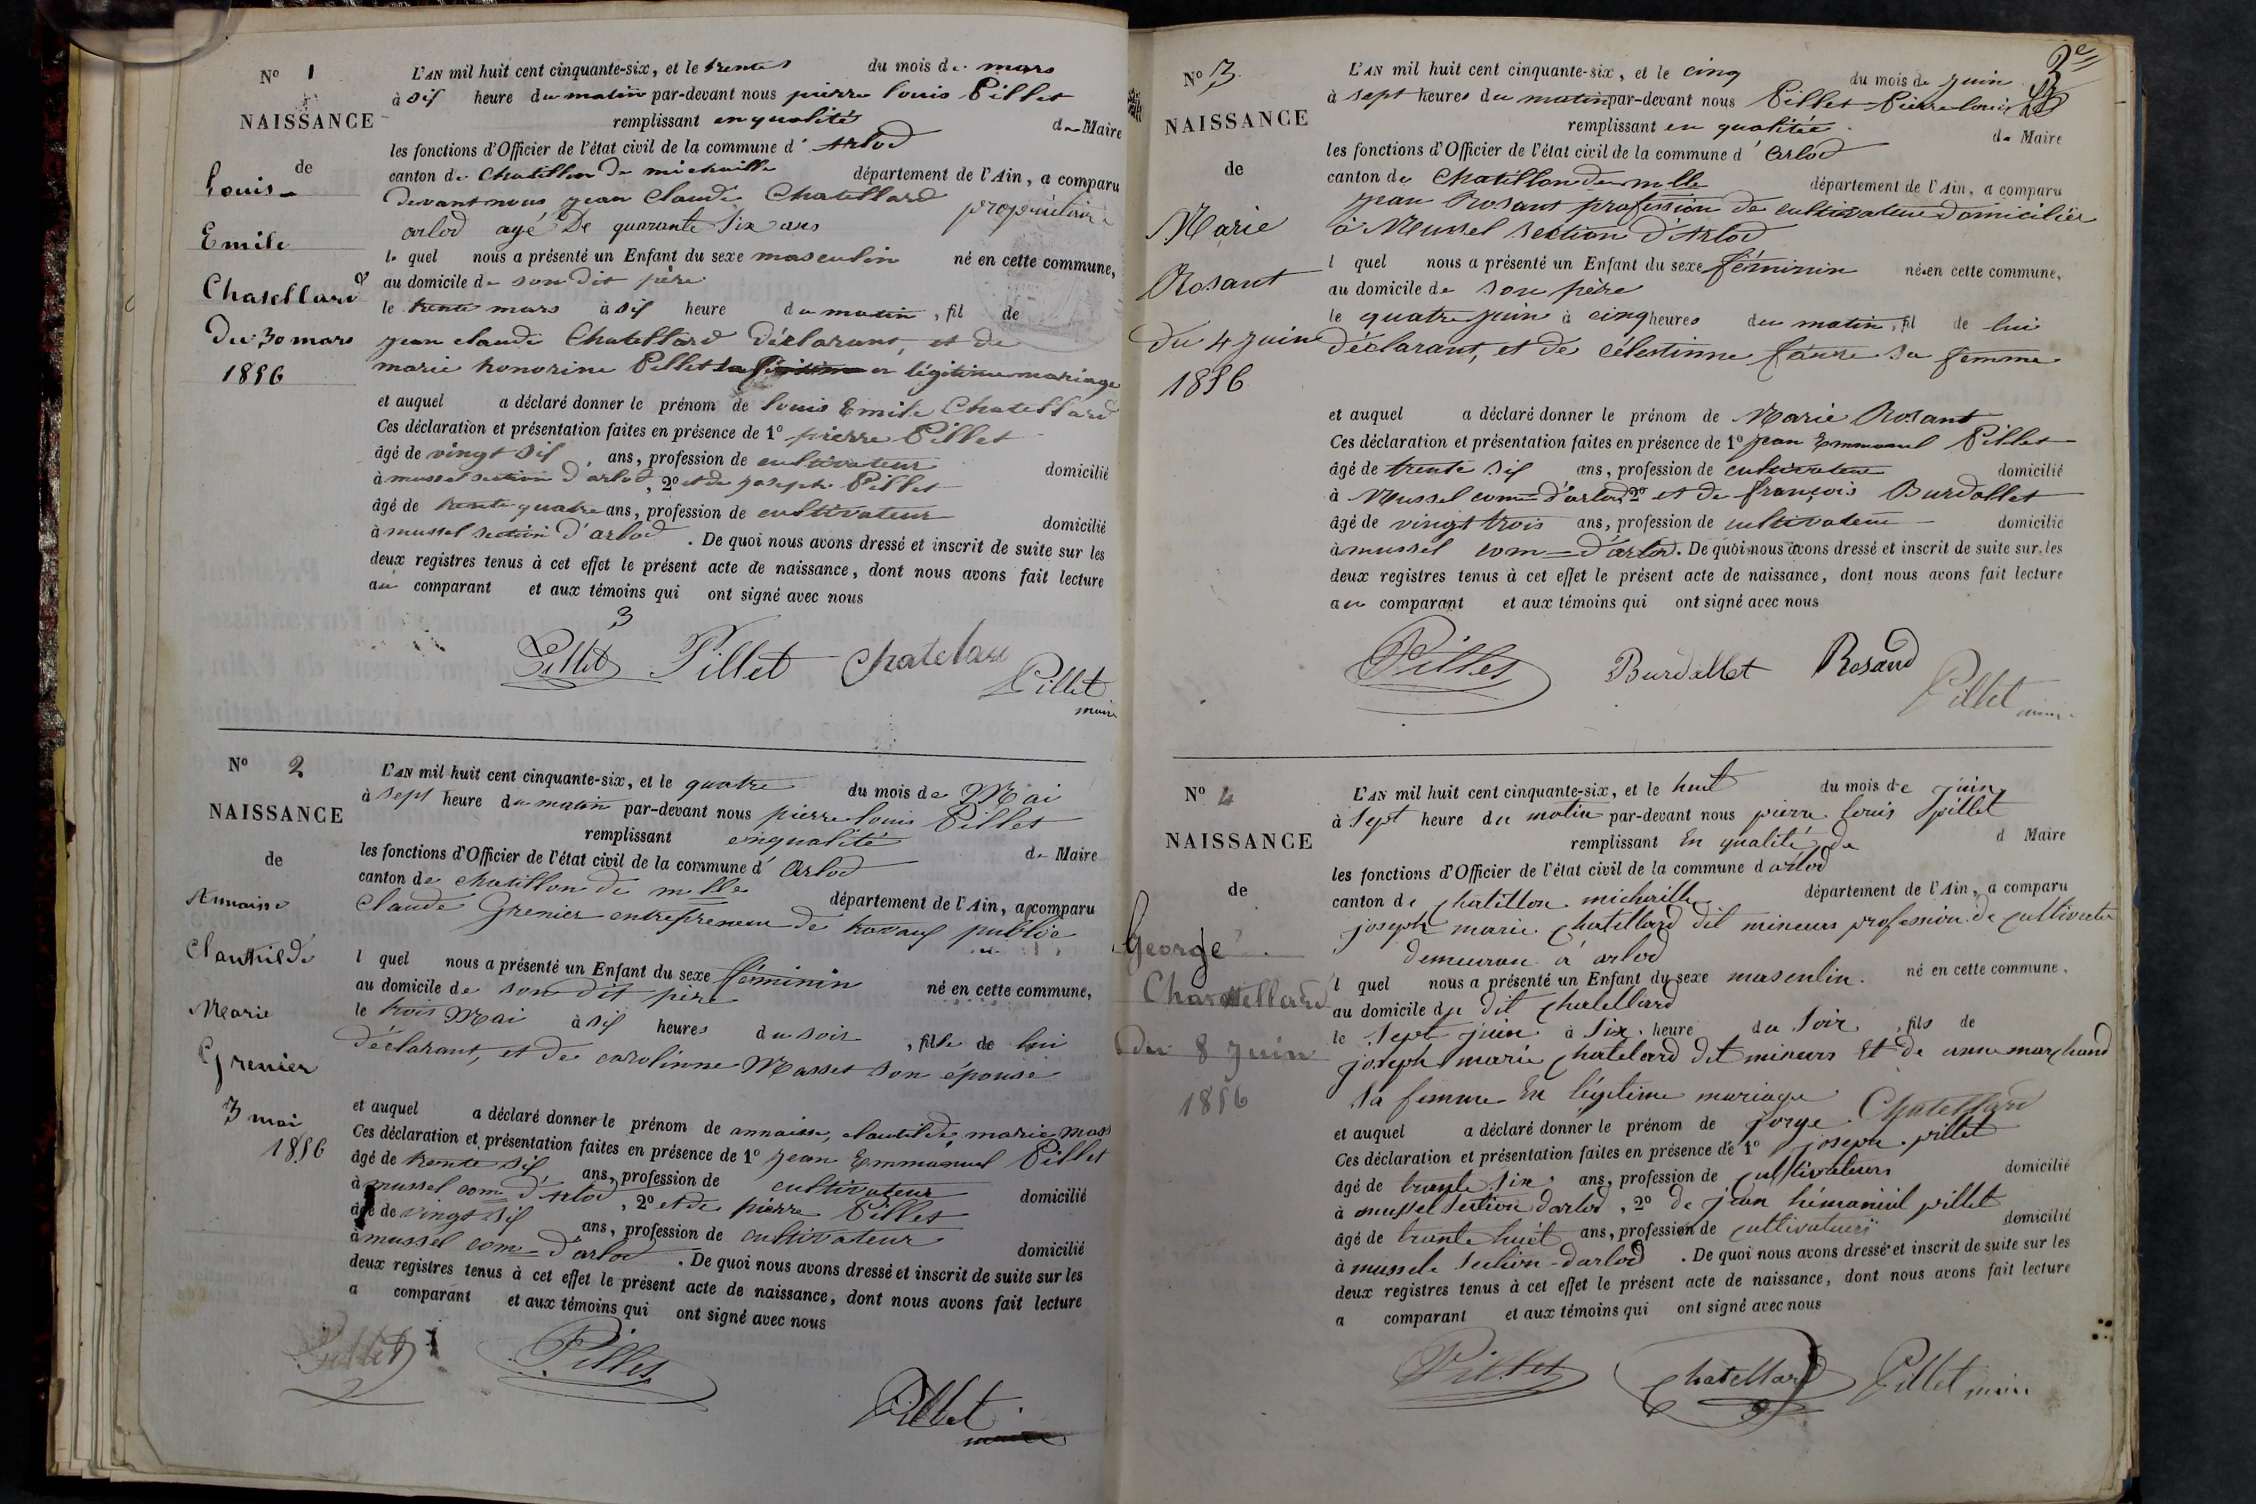 N° 1
NAISSANCE
de
Louis
Emile
Chatellard
Du 30 mars
1856
L'AN mil huit cent cinquante-six, et le trente du mois de mars
à six heure du matin par-devant nous pierre louis Pillet
remplissant en qualités de Maire
les fonctions d'Officier de l'état civil de la commune d' Arlod
canton de Chatillon De michaille département de l'Ain, a comparu
Devant nous jean Claude Chatellard propriétaire
arlod agé De quarante Six ans
le quel nous a présenté un Enfant du sexe masculin né en cette commune,
au domicile de son dit père
le trente mars à six heure du matin, fil de
jean claude Chatellard Déclarant, et de
marie honorine Pillet en légitime mariage
et auquel a déclaré donner le prénom de louis Emile Chatellard
Ces déclaration et présentation faites en présence de 1° pierre Pillet
âgé de vingt six ans, profession de cultivateur domicilié
à mussel section d'arlod, 2° et de joseph Pillet
âgé de trente quatre ans, profession de cultivateur domicilié
à mussel section d'arlod. De quoi nous avons dressé et inscrit de suite sur les
deux registres tenus à cet effet le présent acte de naissance, dont nous avons fait lecture
au comparant et aux témoins qui ont signé avec nous
3
Pillet Pillet Chatelard Pillet
maire
N° 2
NAISSANCE
de
Annaise
Clautilde
Marie
Grenier
3 mai
1856
L'AN mil huit cent cinquante-six, et le quatre du mois de Mai
à sept heure du matin par-devant nous pierre louis Pillet
remplissant enqualité de Maire
les fonctions d'Officier de l'état civil de la commune d' Arlod
canton de chatillon de mlle département de l'Ain, a comparu
Claude Grenier entrepreneur de travaux public
l quel nous a présenté un Enfant du sexe féminin né en cette commune,
au domicile de son dit père
le trois Mai à six heures du soir, fille de lui
déclarant, et de carolinne Masset son épouse
et auquel a déclaré donner le prénom de annaise, clautilde, marie
Ces déclaration et présentation faites en présence de 1° jean Emmanuel Pillet
âgé de trente six ans, profession de cultivateur domicilié
à mussel com d'Arlod, 2° et de pierre Pillet
âgé de vingt six ans, profession de cultivateur domicilié
à mussel com d'arlod. De quoi nous avons dressé et inscrit de suite sur les
deux registres tenus à cet effet le présent acte de naissance, dont nous avons fait lecture
a comparant et aux témoins qui ont signé avec nous
Pillet Pillet
Pillet
maire
2e
N° 3
NAISSANCE
de
Marie
Rosant
du 4 juin
1856
L'AN mil huit cent cinquante-six, et le cinq du mois de juin
à sept heures du matin par-devant nous Pillet Pierre louis
remplissant en qualitée de Maire
les fonctions d'Officier de l'état civil de la commune d' Arlod
canton de Chatillon de mlle département de l'Ain, a comparu
jean Rosant profession de cultivateur domiciliée
à Mussel section d'Arlod
l quel nous a présenté un Enfant du sexe féminin né en cette commune,
au domicile de son père
le quatre juin à cinq heures du matin, fil de lui
déclarant, et de célestinne favre sa femme
et auquel a déclaré donner le prénom de Marie Rosant
Ces déclaration et présentation faites en présence de 1° jean Emmanuel Pillet
âgé de trente six ans, profession de cultivateur domicilié
à Mussel com d'arlod 2° et de françois Burdallet
âgé de vingt trois ans, profession de cultivateur domicilié
à mussel com d'arlod. De quoi nous avons dressé et inscrit de suite sur les
deux registres tenus à cet effet le présent acte de naissance, dont nous avons fait lecture
au comparant et aux témoins qui ont signé avec nous
Pillet Burdallet Rosand Pillet
maire
N° 4
NAISSANCE
de
George
Chatellard
du 8 juin
1856
L'AN mil huit cent cinquante-six, et le huit du mois de juin
à sept heure du matin par-devant nous pierre louis pillet
remplissant En qualité de d Maire
les fonctions d'Officier de l'état civil de la commune d arlod
canton de chatillon michaille département de l'Ain, a comparu
joseph marie chatellard dit mineurs profession de cultivateur
demeuran à arlod
l quel nous a présenté un Enfant du sexe masculin. né en cette commune,
au domicile du dit chatellard
le sept juin à six heure du soir, fils de
joseph marie chatelard dit mineurs Et de anne marchand
sa femme En légitime mariage
et auquel a déclaré donner le prénom de jorge Chatellard
Ces déclaration et présentation faites en présence de 1° joseph pillet
âgé de trante six ans, profession de cultivateurs domicilié
à mussel section darlod, 2° de jean hémaniul pillet
âgé de trante huit ans, profession de cultivateurs domicilié
à mussele section darlod. De quoi nous avons dressé et inscrit de suite sur les
deux registres tenus à cet effet le présent acte de naissance, dont nous avons fait lecture
a comparant et aux témoins qui ont signé avec nous
Pillet Chatellard Pillet maire